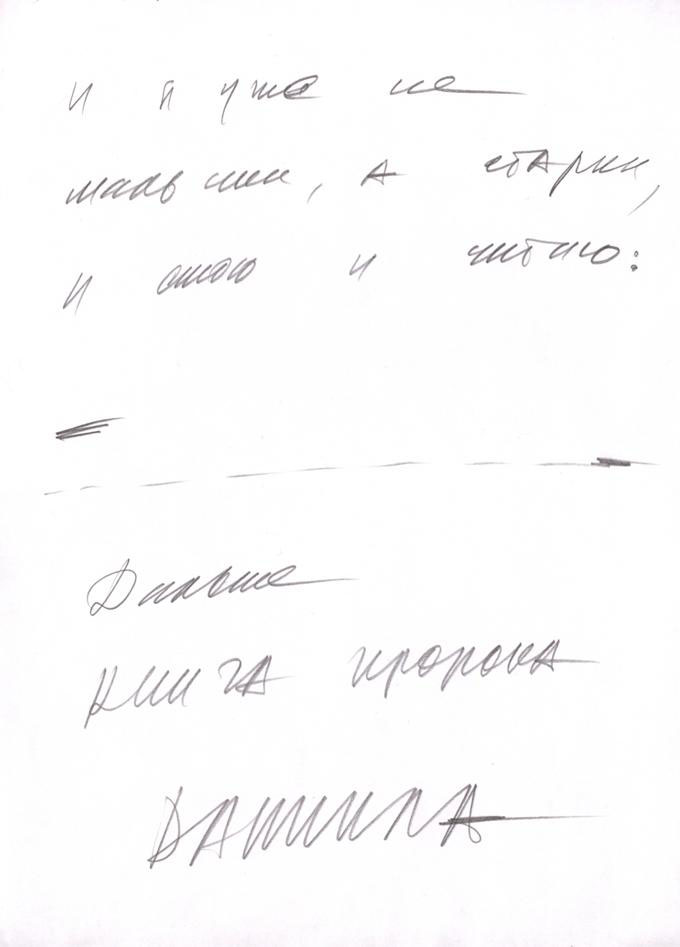 и я уже не
мальчик, а старик,
и стою и читаю:
Дальше
книга пророка
Даниила